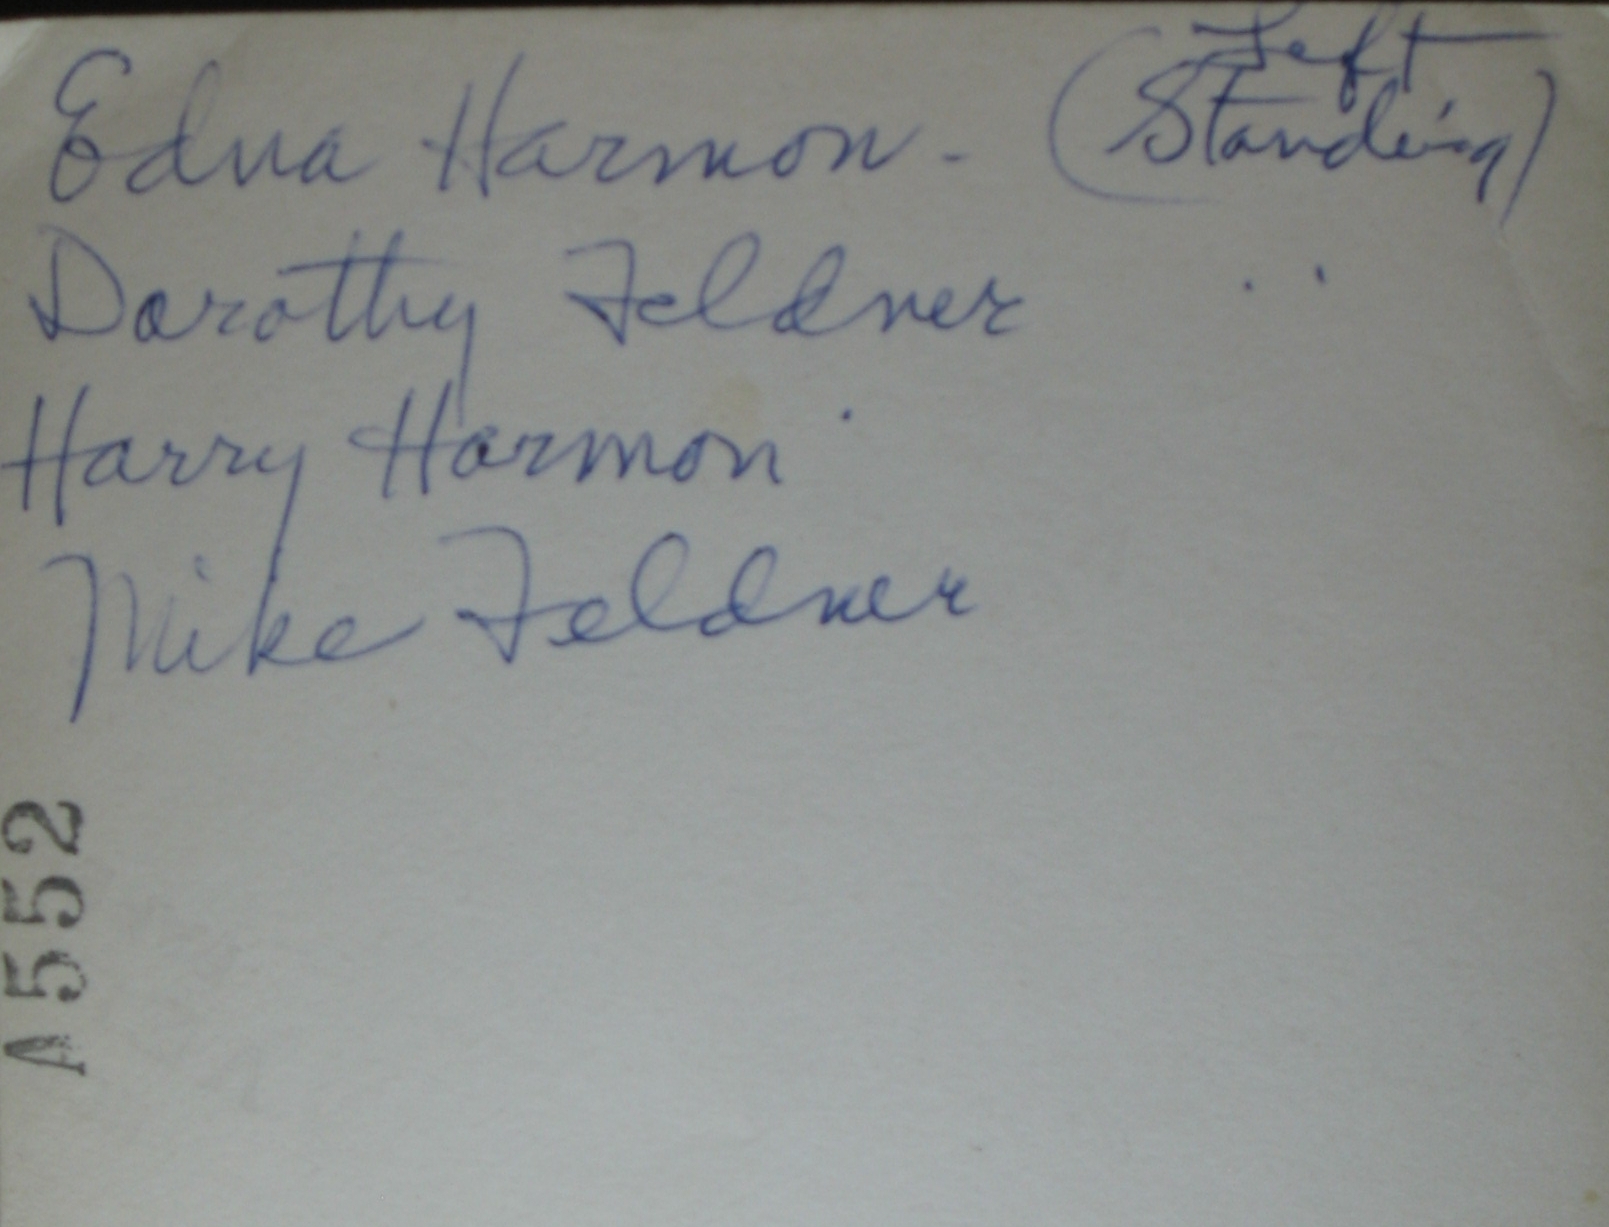 Edna Harmon - (Left Standing)
Dorothy Feldner " 
Harry Harmon
Mike Feldner
A552